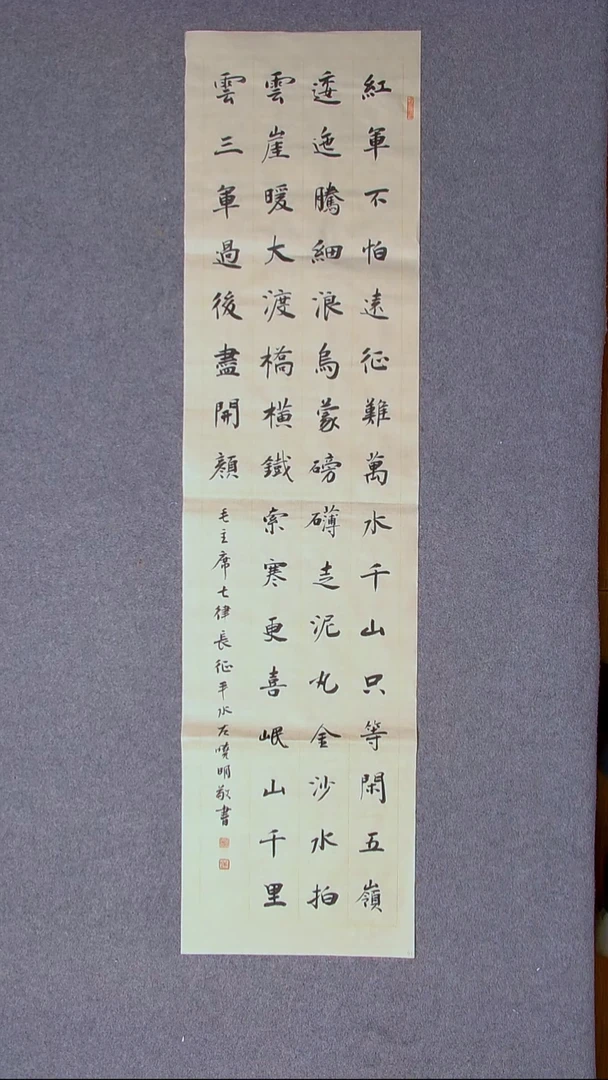 紅軍不怕遠征難萬水千山只等閑五嶺
逶迤騰細浪烏蒙磅礴走泥丸金沙水拍
雲崖暖大渡橋橫鐵索寒更喜岷山千里
雲三軍過後盡開顏
毛主席七律長征平水左曉明敬書